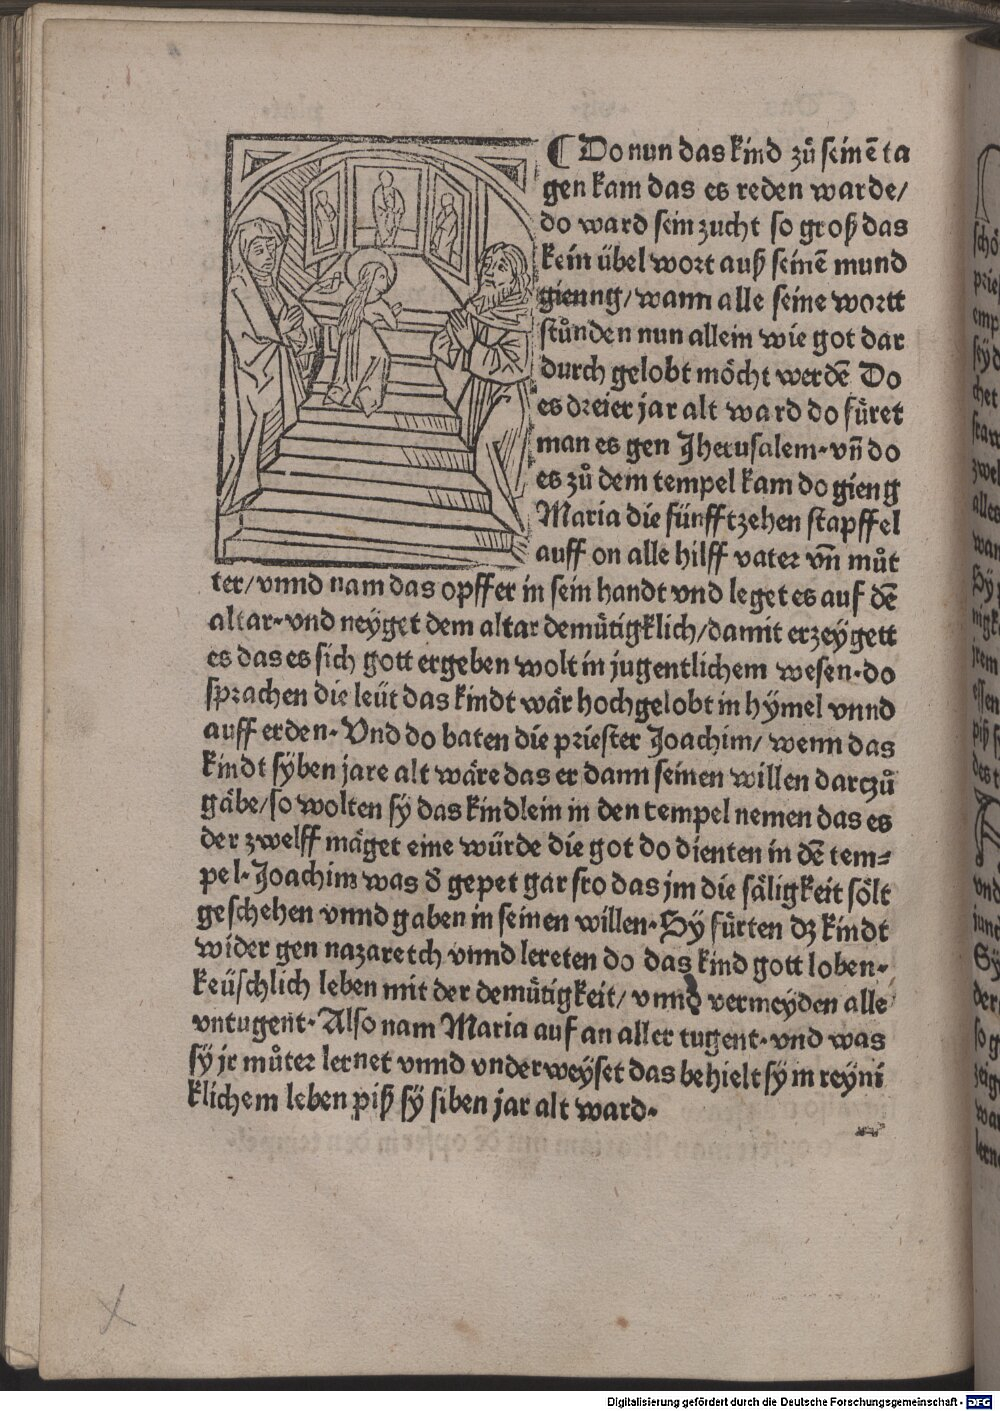 ¶ Do nun das kind zů seinē ta
gen kam das es reden warde/
do ward sein zucht so groß das
kein übel wort auß seinē mund
gienng/ wann alle seine wortt
stůnden nun allein wie got dar
durch gelobt möcht werdē Do
es dreier jar alt ward do füret
man es gen Jherusalem· vn̄ do
es zů dem tempel kam do gieng
Maria die fünfftzehen stapffel
auff on alle hilff vater vn̄ můt
ter/ vnnd nam das opffer in sein handt vnd leget es auf dē
altar· vnd neyget dem altar demütigklich/ damit erzeygett
es das es sich gott ergeben wolt in jugentlichem wesen· do
sprachen die leüt das kindt wär hochgelobt in hymel vnnd
auff erden· Vnd do baten die priester Joachim/ wenn das
kindt syben jare alt wäre das er dann seinen willen darczů
gäbe/ so wolten sy das kindlein in den tempel nemen das es
der zwelff mäget eine würde die got do dienten in dē tem⸗
pel· Joachim was d̓ gepet gar fro das jm die säligkeit sölt
geschehen vnnd gaben in seinen willen· Sy fürten dz kindt
wider gen nazaretch vnnd lereten do das kind gott loben·
keüschlich leben mit der demütigkeit/ vnnd vermeyden alle
vntugent· Also nam Maria auf an aller tugent· vnd was
sy jr můter lernet vnnd vnderweyset das behielt sy in reyni
klichem leben piß sy siben jar alt ward·
Digitalisierung gefördert durch die Deutsche Forschungsgemeinschaft - DFG